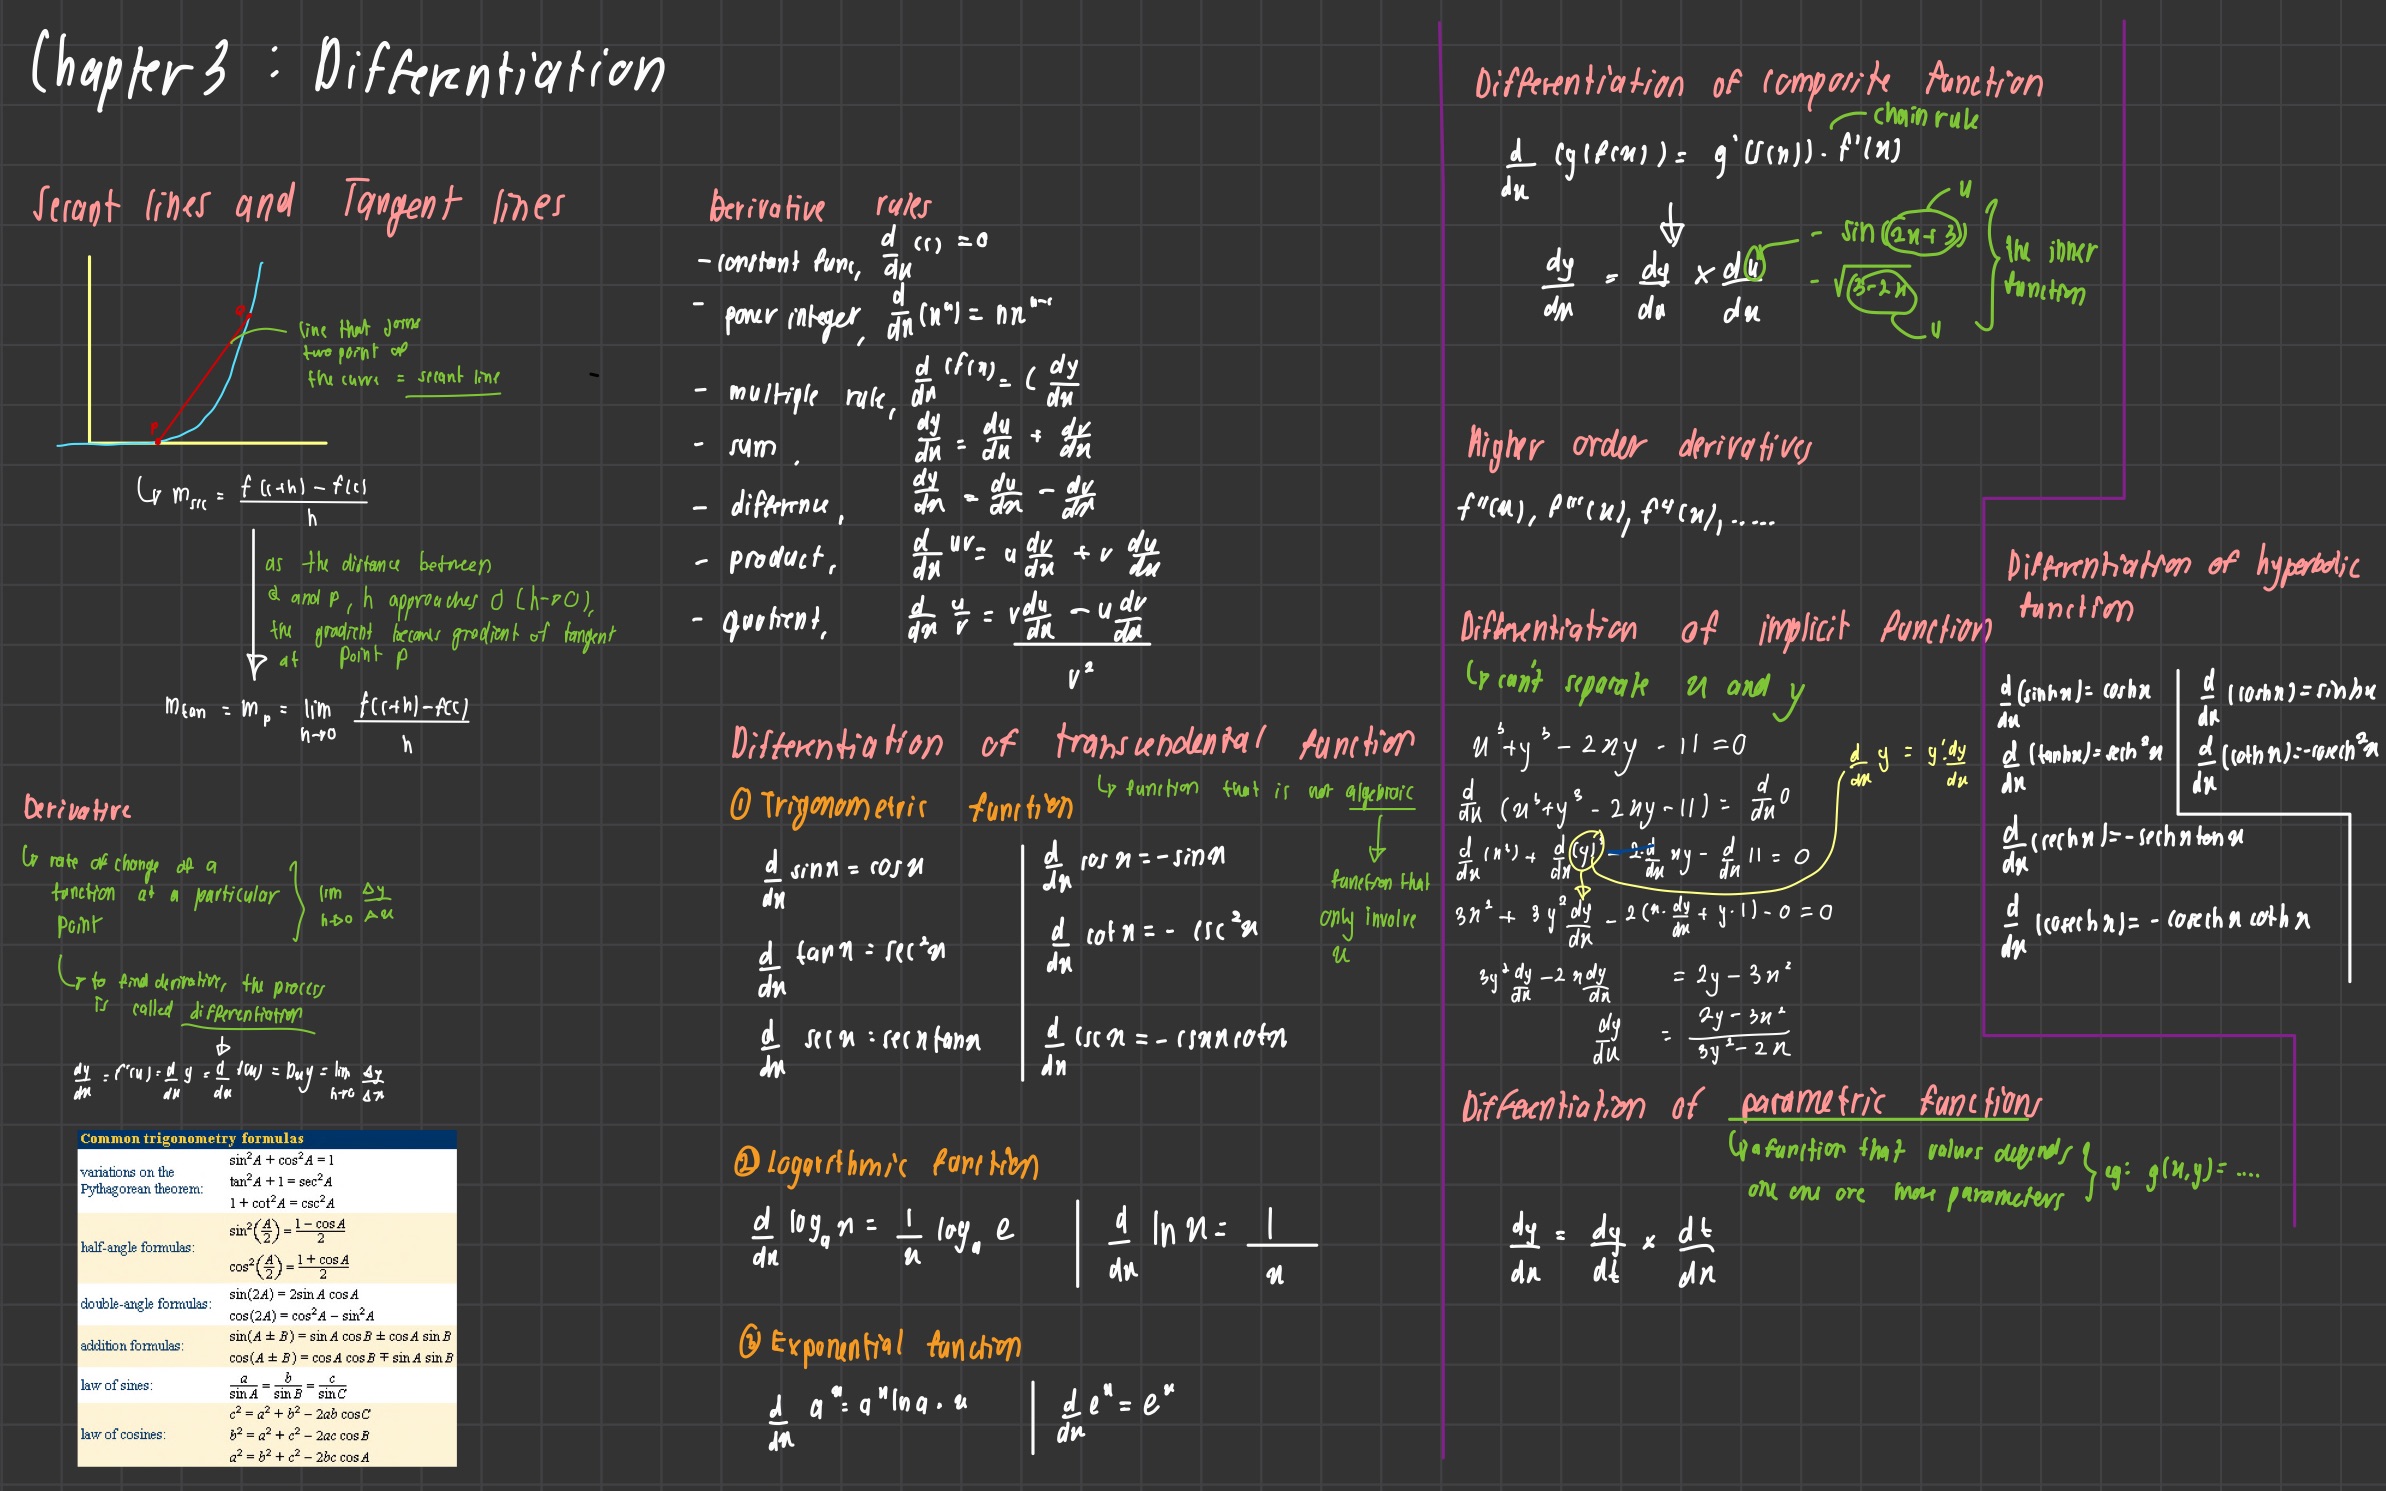 Chapter 3 : Differentiation
Secant lines and Tangent lines
Q
P
line that joins
two point of
the curve = secant line
↳ m_sec = (f(c+h) - f(c)) / h
as the distance between
Q and P, h approaches 0 (h→0),
the gradient becomes gradient of tangent
at point P
m_tan = m_p = lim h→0 (f(c+h) - f(c)) / h
Derivative
↳ rate of change of a
function at a particular
point
lim h→0 Δy/Δx
↳ to find derivative, the process
is called differentiation
dy/dx = f'(x) = d/dx y = d/dx f(x) = Dxy = lim h→0 Δy/Δx
Common trigonometry formulas
variations on the
Pythagorean theorem:
sin²A + cos²A = 1
tan²A + 1 = sec²A
1 + cot²A = csc²A
half-angle formulas:
sin²(A/2) = (1 − cosA)/2
cos²(A/2) = (1 + cosA)/2
double-angle formulas:
sin(2A) = 2sinA cosA
cos(2A) = cos²A − sin²A
addition formulas:
sin(A ± B) = sinA cosB ± cosA sinB
cos(A ± B) = cosA cosB ∓ sinA sinB
law of sines:
a/sinA = b/sinB = c/sinC
law of cosines:
c² = a² + b² − 2ab cosC
b² = a² + c² − 2ac cosB
a² = b² + c² − 2bc cosA
Derivative rules
- constant func, d/dx (c) = 0
- power integer, d/dx (xⁿ) = nxⁿ⁻¹
- multiple rule, d/dx cf(x) = c dy/dx
- sum, dy/dx = du/dx + dv/dx
- difference, dy/dx = du/dx - dv/dx
- product, d/dx uv = u dv/dx + v du/dx
- quotient, d/dx u/v = (v du/dx - u dv/dx) / v²
Differentiation of transcendental function
↳ function that is not algebraic
function that
only involve
x
① Trigonometric function
d/dx sin x = cos x
d/dx cos x = - sin x
d/dx tan x = sec²x
d/dx cot x = - csc²x
d/dx sec x = sec x tan x
d/dx csc x = - csc x cot x
② Logarithmic function
d/dx logₐ x = 1/x logₐ e
d/dx ln x = 1/x
③ Exponential function
d/dx aˣ = aˣ ln a . x
d/dx eˣ = eˣ
Differentiation of composite function
chain rule
d/dx (g(f(x)) = g'(f(x)) . f'(x)
dy/dx = dy/du × du/dx
- sin(2x+3)
u
- √(3-2x)
u
the inner
function
Higher order derivatives
f''(x), f'''(x), f⁴(x), .....
Differentiation of implicit function
↳ can't separate x and y
x³ + y³ - 2xy - 11 = 0
d/dx (x³ + y³ - 2xy - 11) = d/dx 0
d/dx (x³) + d/dx (y)³ - 2 . d/dx xy - d/dx 11 = 0
d/dx y = y' . dy/dx
3x² + 3y² dy/dx - 2(x . dy/dx + y . 1) - 0 = 0
3y² dy/dx - 2x dy/dx = 2y - 3x²
dy/dx = (2y - 3x²) / (3y² - 2x)
Differentiation of parametric functions
↳ a function that values depends
one one ore more parameters
eg: g(x,y) = ....
dy/dx = dy/dt × dt/dx
Differentiation of hyperbolic
function
d/dx (sinh x) = cosh x
d/dx (cosh x) = sinh x
d/dx (tanh x) = sech²x
d/dx (coth x) = - cosech²x
d/dx (sech x) = - sech x tan x
d/dx (cosech x) = - cosech x coth x